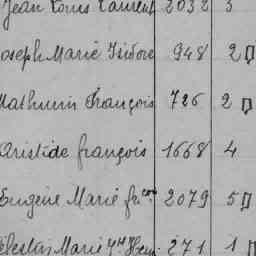 Jean Louis Laurent 2032 3
Joseph Marie Isidore 948 2
Mathurin François 726 2
Aristide françois 1668 4
Eugène Marie fr.çois 2079 5
Célestin Marie 271 1